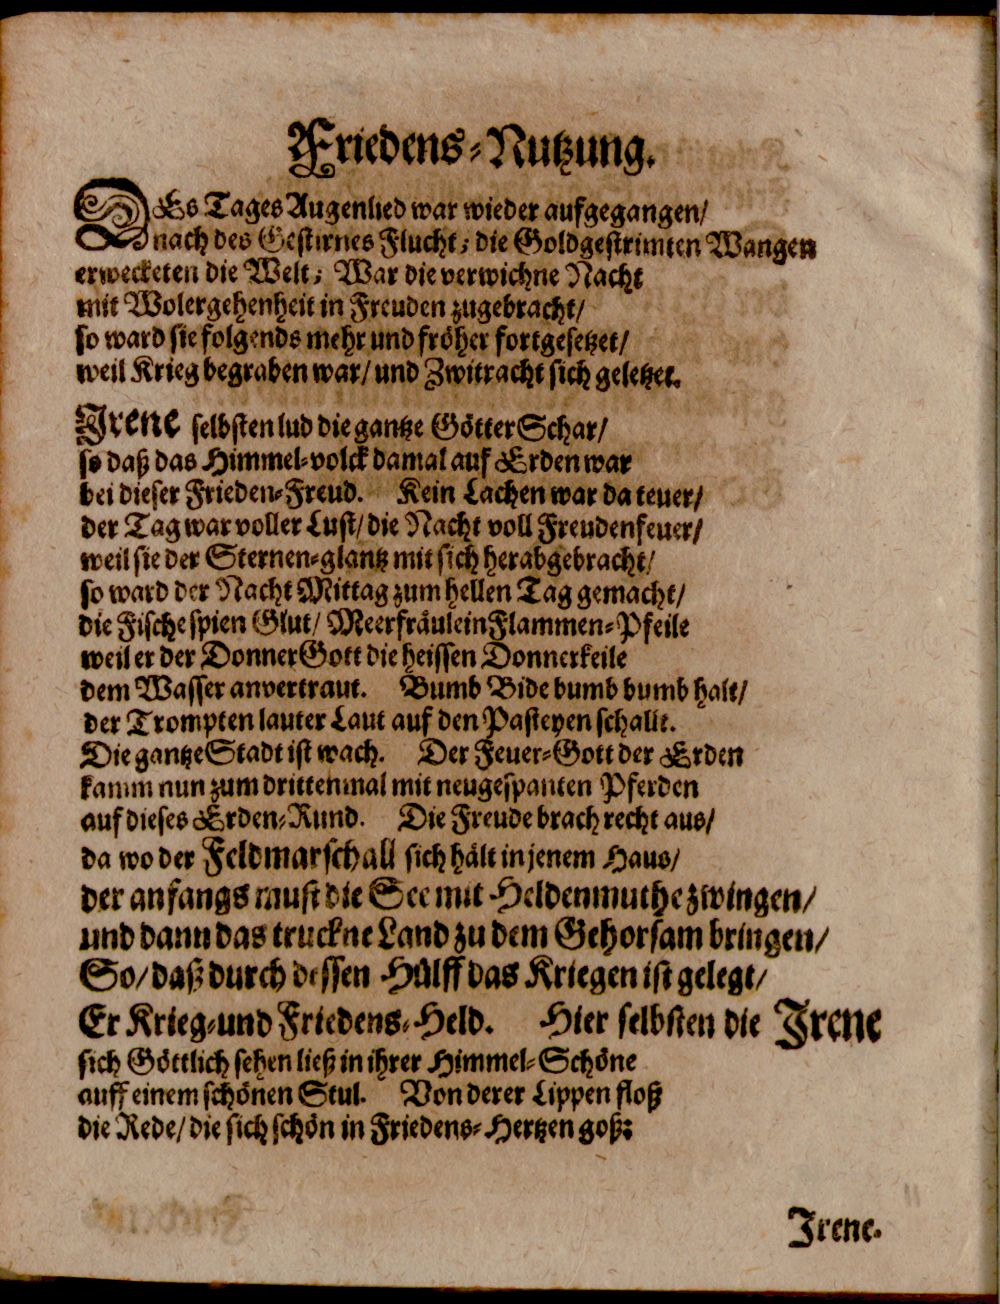 Friedens-Nutzung.
DEs Tages Augenlied war wieder aufgegangen/
nach des Gestirnes Flucht; die Goldgestrimten Wangen
erwecketen die Welt; War die verwichne Nacht
mit Wolergehenheit in Freuden zugebracht/
so ward sie folgends mehr und fröher fortgesetzet/
weil Krieg begraben war/ und Zwitracht sich geletzet.
Irene selbsten lud die gantze Götter Schar/
so daß das Himmel-volck damal auf Erden war
bei dieser Frieden-Freud. Kein Lachen war da teuer/
der Tag war voller Lust/ die Nacht voll Freudenfeuer/
weil sie der Sternen-glantz mit sich herabgebracht/
so ward der Nacht Mittag zum hellen Tag gemacht/
die Fische spien Glut/ Meerfräulein Flammen-Pfeile
weil er der Donner Gott die heissen Donnerkeile
dem Wasser anvertraut. Bumb Bide bumb bumb halt/
der Trompten lauter Laut auf den Pasteyen schallt.
Die gantze Stadt ist wach. Der Feuer-Gott der Erden
kamm nun zum drittenmal mit neugespanten Pferden
auf dieses Erden-Rund. Die Freude brach recht aus/
da wo der Feldmarschall sich hält in jenem Haus/
der anfangs must die See mit Heldenmuthe zwingen/
und dann das truckne Land zu dem Gehorsam bringen/
So/ daß durch dessen Hülff das Kriegen ist gelegt/
Er Krieg-und Friedens-Held. Hier selbsten die Irene
sich Göttlich sehen ließ in ihrer Himmel-Schöne
auff einem schönen Stul. Von derer Lippen floß
die Rede/ die sich schön in Friedens-Hertzen goß:
Irene.